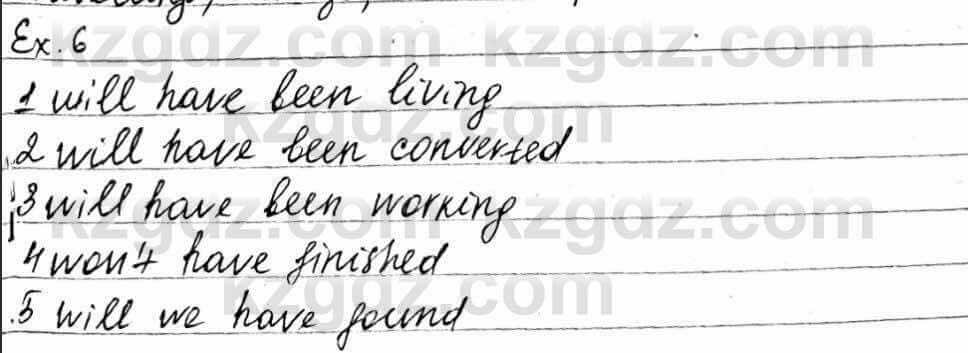 Ex. 6
kzgdz.com kzgdz.com
1 will have been living
kzgdz.com
2 will have been converted
3 will have been working
kzgdz.com kzgdz.com
4 won't have finished
kzgdz.com
5 will we have found